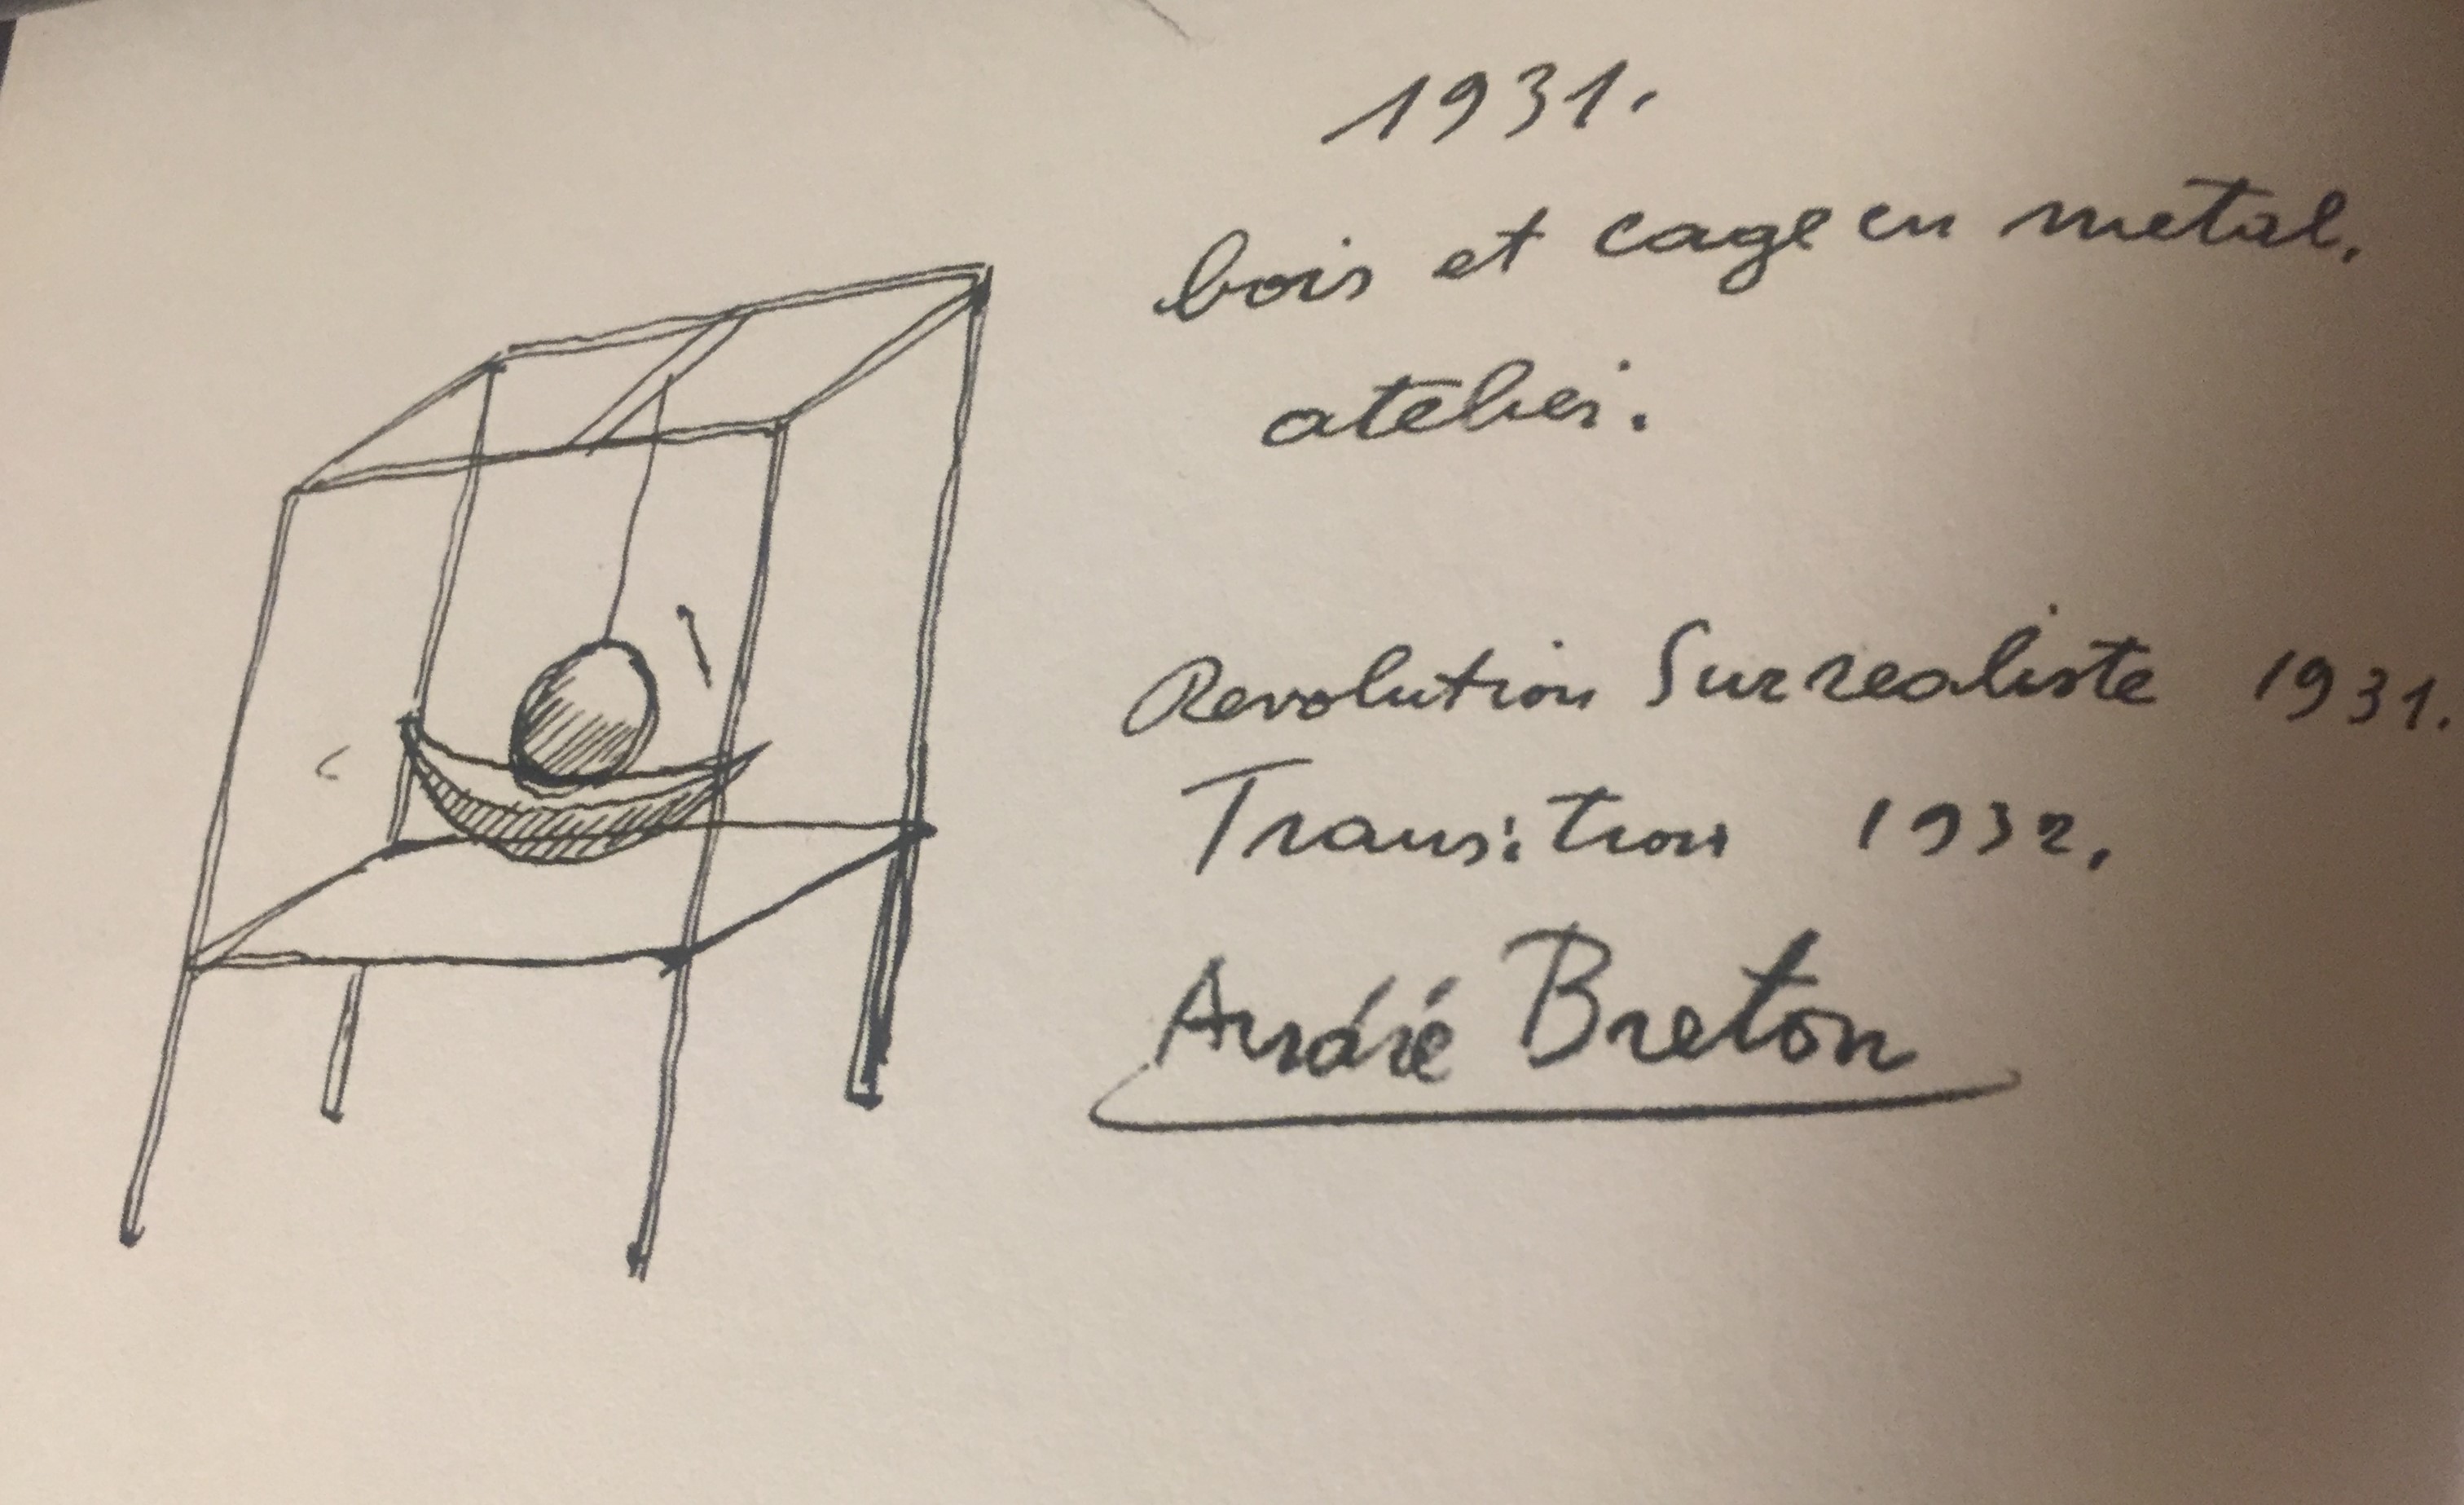 1931.
bois et cage en metal.
atelier.
Revolution Surrealiste 1931.
Transition 1932.
André Breton